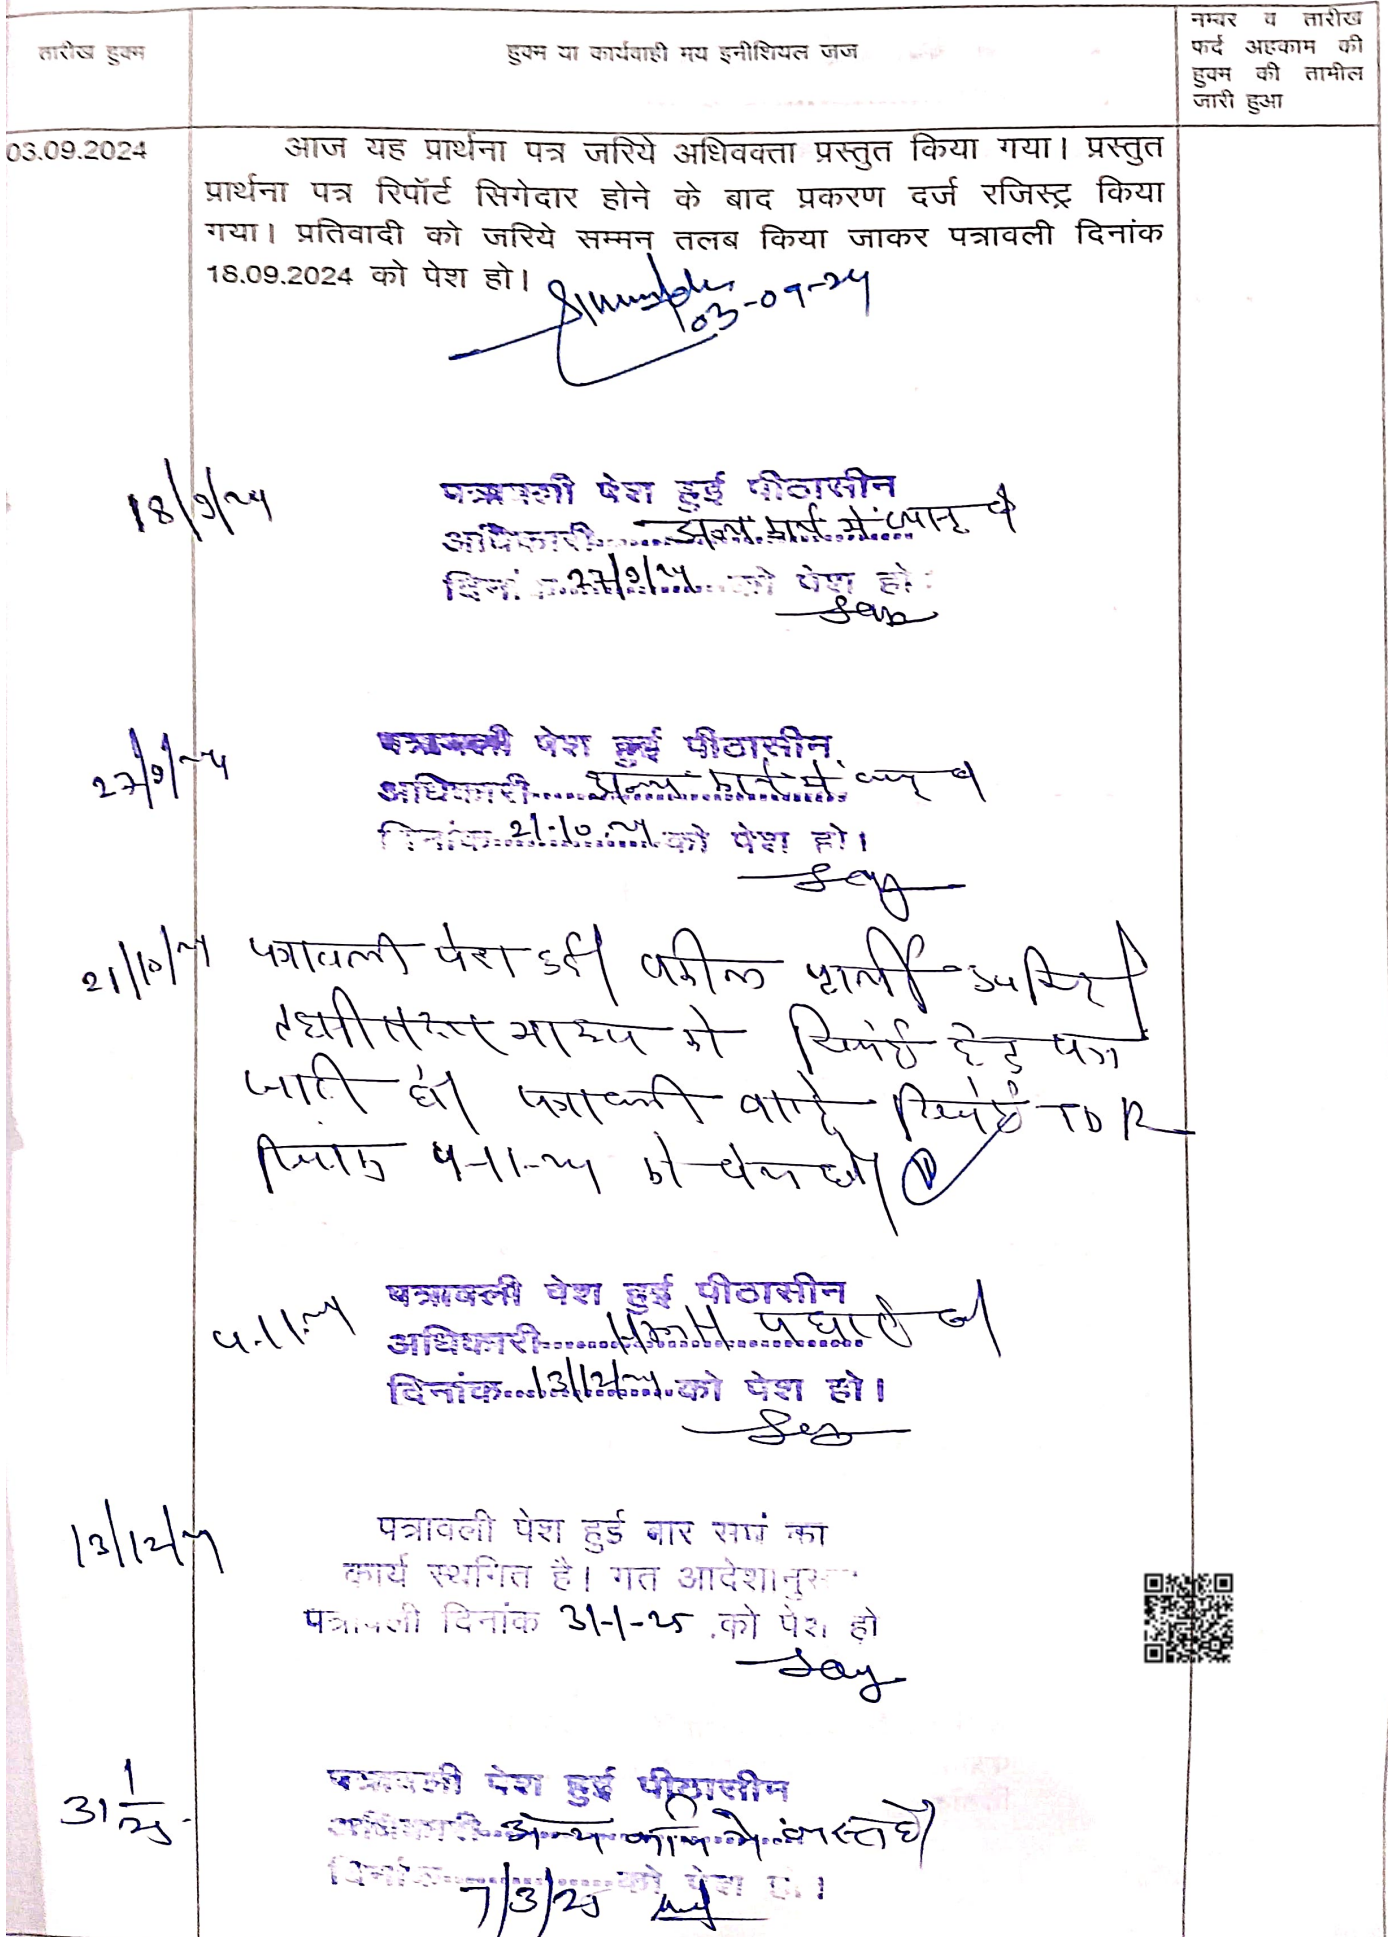 तारीख हुक्म
हुक्म या कार्यवाही मय इनीशियल जज
नम्बर व तारीख
फर्द अहकाम की
हुक्म की तामील
जारी हुआ
03.09.2024
आज यह प्रार्थना पत्र जरिये अधिवक्ता प्रस्तुत किया गया। प्रस्तुत
प्रार्थना पत्र रिपॉर्ट सिगेदार होने के बाद प्रकरण दर्ज रजिस्ट्र किया
गया। प्रतिवादी को जरिये सम्मन् तलब किया जाकर पत्रावली दिनांक
18.09.2024 को पेश हो।
03-09-24
18/9/24
पत्रावली पेश हुई पीठासीन
अधिकारी अन्य कार्य में
दिनांक 27/9/24 को पेश हो
27/9/24
पत्रावली पेश हुई पीठासीन
अधिकारी अन्य कार्य में
दिनांक 21.10.24 को पेश हो।
21/10/24
पत्रावली पेश हुई। वकील प्रार्थी उपस्थित।
को रिपोर्ट हेतु पत्र
जारी हो। पत्रावली वास्ते रिपोर्ट TDR
दिनांक 4-11-24 को पेश हो।
4-11-24
पत्रावली पेश हुई पीठासीन
अधिकारी
दिनांक 13/12/24 को पेश हो।
13/12/24
पत्रावली पेश हुई बार सघं का
कार्य स्थगित है। गत आदेशानुसार
पत्रावली दिनांक 31-1-25 को पेश हो
31 1/25
पत्रावली पेश हुई पीठासीन
अधिकारी अन्य कार्य में व्यस्त है।
दिनांक को पेश हो।
7/3/25